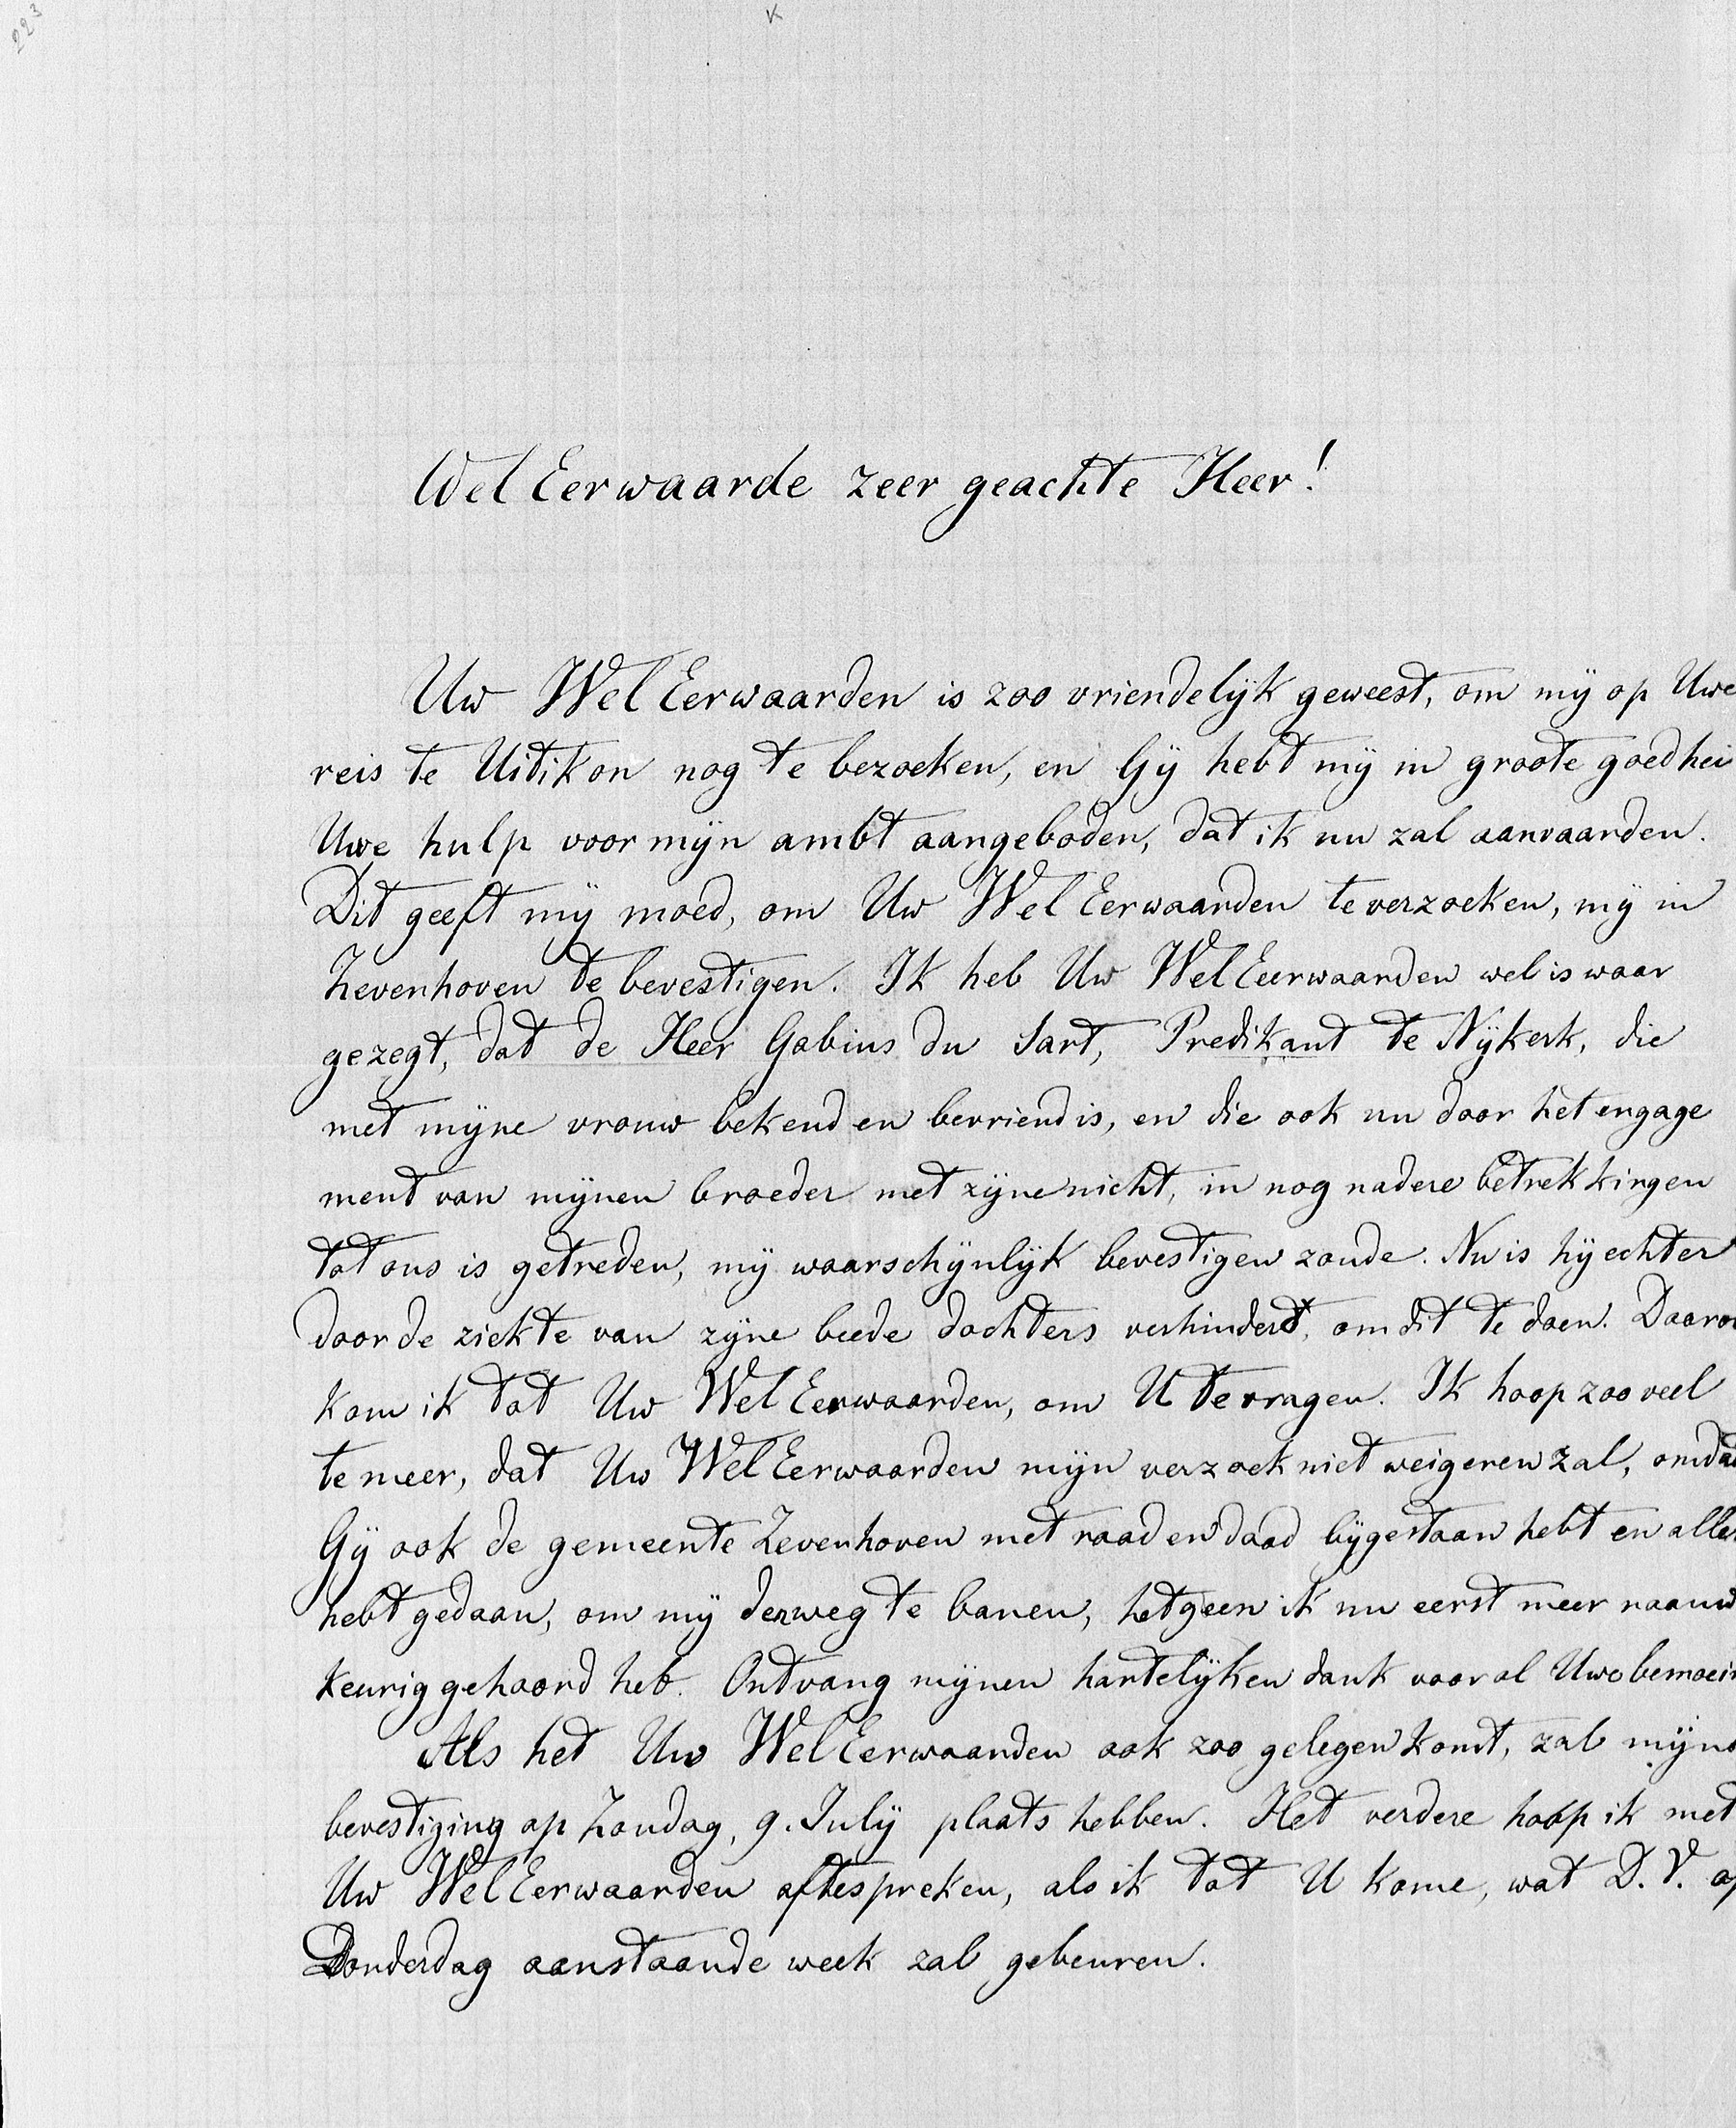 223
K
Wel Eerwaarde zeer geachte Heer!
Uw Wel Eerwaarden is zoo vriendelijk geweest, om mij op Uwe
reis te Uitikon nog te bezoeken, en Gij hebt mij in groote goedhei
Uwe hulp voor mijn ambt aangeboden, dat ik nu zal aanvaarden.
Dit geeft mij moed, om Uw Wel Eerwaarden te verzoeken, mij in
Zevenhoven te bevestigen. Ik heb Uw Wel Eerwaarden wel is waar
gezegt, dat de Heer Gobius du Sart, Predikant te Nijkerk, die
met mijne vrouw bekend en bevriend is, en die ook nu door het engage
ment van mijnen broeder met zijne nicht, in nog nadere betrekkingen
tot ons is getreden, mij waarschijnlijk bevestigen zoude. Nu is hij echter
door de ziekte van zijne beede dochters verhinderd, om dit te doen. Daarom
kom ik tot Uw Wel Eerwaarden, om U te vragen. Ik hoop zoo veel
te meer, dat Uw Wel Eerwaarden mijn verzoek niet weigeren zal, omdat
Gij ook de gemeente Zevenhoven met raad en daad bijgestaan hebt en alles
hebt gedaan, om mij den weg te banen, hetgeen ik nu eerst meer naauw
keurig gehoord heb. Ontvang mijnen hartelijken dank voor al Uwe bemoein
Als het Uw Wel Eerwaarden ook zoo gelegen komt, zal mijne
bevestiging op Zondag, 9. July plaats hebben. Het verdere hoop ik met
Uw Wel Eerwaarden aftespreken, als ik tot U kome, wat D. V. op
Donderdag aanstaande week zal gebeuren.